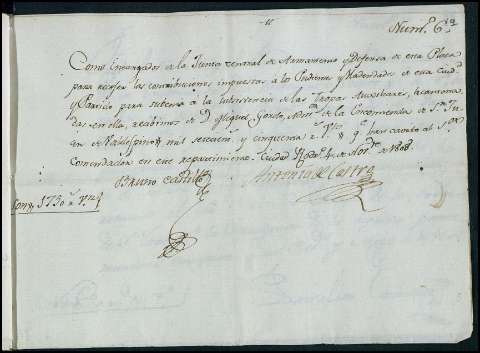 Num.º 6.º
Como Encargados de la Junta central de Armamento y Defensa de esta Plaza
para recojer las contribuciones impuestas a los Pudientes y Hacendados de esta Ciud.d
y Partido para subvenir á la subsistencia de las Tropas Auxiliares, acantona
das en ella, recibimos de D.n Miguel Gordo, Adm.or de la Encomienda de S.n Ju
an de mil setecien.s y cinquenta r.s v.n q.e han cavido al S.or
Comendador en este repartimiento. Ciudad Rodr.o de Nov.re de 1808
Bruno Castillo
Antonio de Castro
Son 1750 r.s v.n